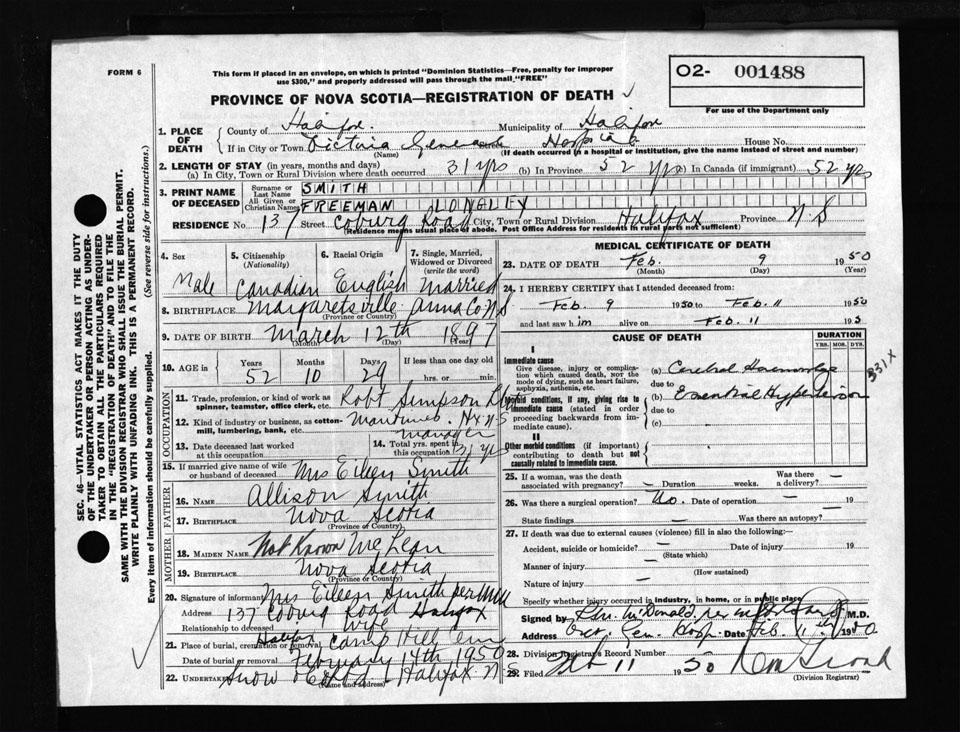 FORM 6
This form if placed in an envelope, on which is printed "Dominion Statistics—Free, penalty for improper
use $300," and properly addressed will pass through the mail "FREE"
O2- 001488
For use of the Department only
PROVINCE OF NOVA SCOTIA—REGISTRATION OF DEATH
1. PLACE OF DEATH
County of Halifax Municipality of Halifax
If in City or Town Victoria General Street Hospital House No.
(Name) (If death occurred in a hospital or institution, give the name instead of street and number)
2. LENGTH OF STAY (in years, months and days)
(a) In City, Town or Rural Division where death occurred 31 yrs (b) In Province 52 yrs (c) In Canada (if immigrant) 52 yrs
3. PRINT NAME OF DECEASED
Surname or Last Name SMITH
All Given or Christian Names FREEMAN LONGLEY
RESIDENCE No. 137 Street Coburg Road City, Town or Rural Division Halifax Province N.S
(Residence means usual place of abode. Post Office Address for residents in rural parts not sufficient)
4. Sex
5. Citizenship (Nationality)
6. Racial Origin
7. Single, Married, Widowed or Divorced (write the word)
Male Canadian English Married
8. BIRTHPLACE Margaretsville Anna Co N S
(Province or Country)
9. DATE OF BIRTH March 12th 1897
(Month) (Day) (Year)
10. AGE in Years Months Days If less than one day old
52 10 29 hrs. or min.
OCCUPATION
11. Trade, profession, or kind of work as spinner, teamster, office clerk, etc. Robt Simpson
12. Kind of industry or business, as cotton-mill, lumbering, bank, etc. Maritimes Hx N.S
manager
13. Date deceased last worked at this occupation
14. Total yrs. spent in this occupation 31 yrs
15. If married give name of wife or husband of deceased Mrs Eileen Smith
FATHER
16. NAME Allison Smith
17. BIRTHPLACE Nova Scotia
(Province or Country)
MOTHER
18. MAIDEN NAME Not Known McLean
19. BIRTHPLACE Nova Scotia
(Province or Country)
20. Signature of informant Mrs Eileen Smith per
Address 137 Coburg Road Halifax
Relationship to deceased Wife
21. Place of burial, cremation or removal Halifax Camp Hill Cem
Date of burial or removal February 14th 1950
22. Undertaker Snow & Co Ltd Halifax N S
(Name and address)
MEDICAL CERTIFICATE OF DEATH
23. DATE OF DEATH Feb. 9 1950
(Month) (Day) (Year)
24. I HEREBY CERTIFY that I attended deceased from:
Feb 9 1950 to Feb 11 1950
and last saw him alive on Feb 11 195
CAUSE OF DEATH
DURATION
YRS. MOS. DYS.
I
Immediate cause
Give disease, injury or complication which caused death, not the mode of dying, such as heart failure, asphyxia, asthenia, etc.
(a) Cerebral Haemorrhage
due to
Morbid conditions, if any, giving rise to immediate cause (stated in order proceeding backwards from immediate cause).
(b) Essential Hypertension
due to
(c)
331X
II
Other morbid conditions (if important) contributing to death but not causally related to immediate cause.
25. If a woman, was the death associated with pregnancy? — Duration weeks. Was there a delivery? —
26. Was there a surgical operation? No. Date of operation — 19
State findings — Was there an autopsy? —
27. If death was due to external causes (violence) fill in also the following:—
Accident, suicide or homicide? — Date of injury 19
(State which)
Manner of injury —
(How sustained)
Nature of injury —
Specify whether injury occurred in industry, in home, or in public place
Signed by McDonald M.D.
Address Vic. Gen. Hosp. Date Feb. 11th 1950
28. Division Registrar's Record Number
29. Filed Feb 11 1950
(Division Registrar)
SEC. 46—VITAL STATISTICS ACT MAKES IT THE DUTY
OF THE UNDERTAKER OR PERSON ACTING AS UNDER-
TAKER TO OBTAIN ALL THE PARTICULARS REQUIRED
IN THE "REGISTRATION OF DEATH" AND TO FILE THE
SAME WITH THE DIVISION REGISTRAR WHO SHALL ISSUE THE BURIAL PERMIT.
WRITE PLAINLY WITH UNFADING INK. THIS IS A PERMANENT RECORD.
Every item of information should be carefully supplied. (See reverse side for instructions.)